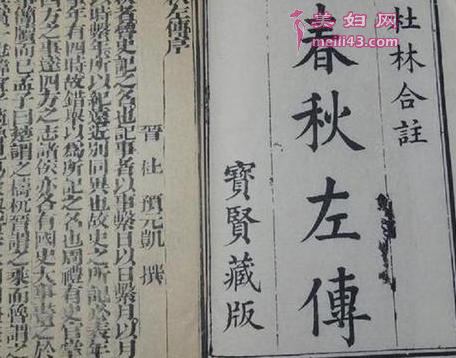 杜林合註
春秋左傳
寶賢藏版
左傳序
晉 杜 預元凱 撰
者魯史記之名也記事者以事繫日以日繫月以月
繫年所以紀遠近別同異也故史之所記必表年
年有四時故錯舉以爲所記之名也周禮有史官掌
方之事達四方之志諸侯亦各有國史大事書之於
簡牘而已孟子曰楚謂之檮杌晉謂之乘而魯謂
春妇网
meili43.com